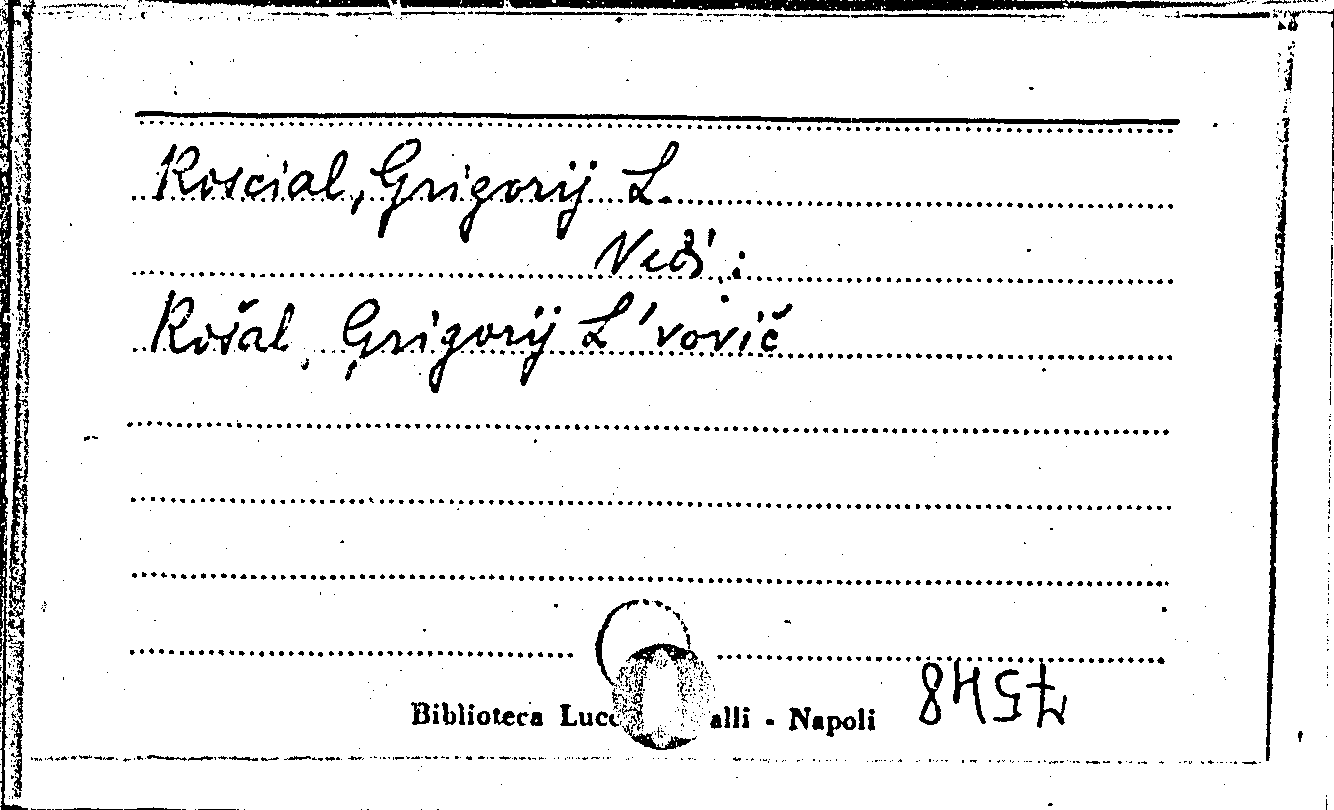 Roscial, Grigorij L.
Vedi:
Rošal, Grigorij L'vovič
Biblioteca - Napoli
7548